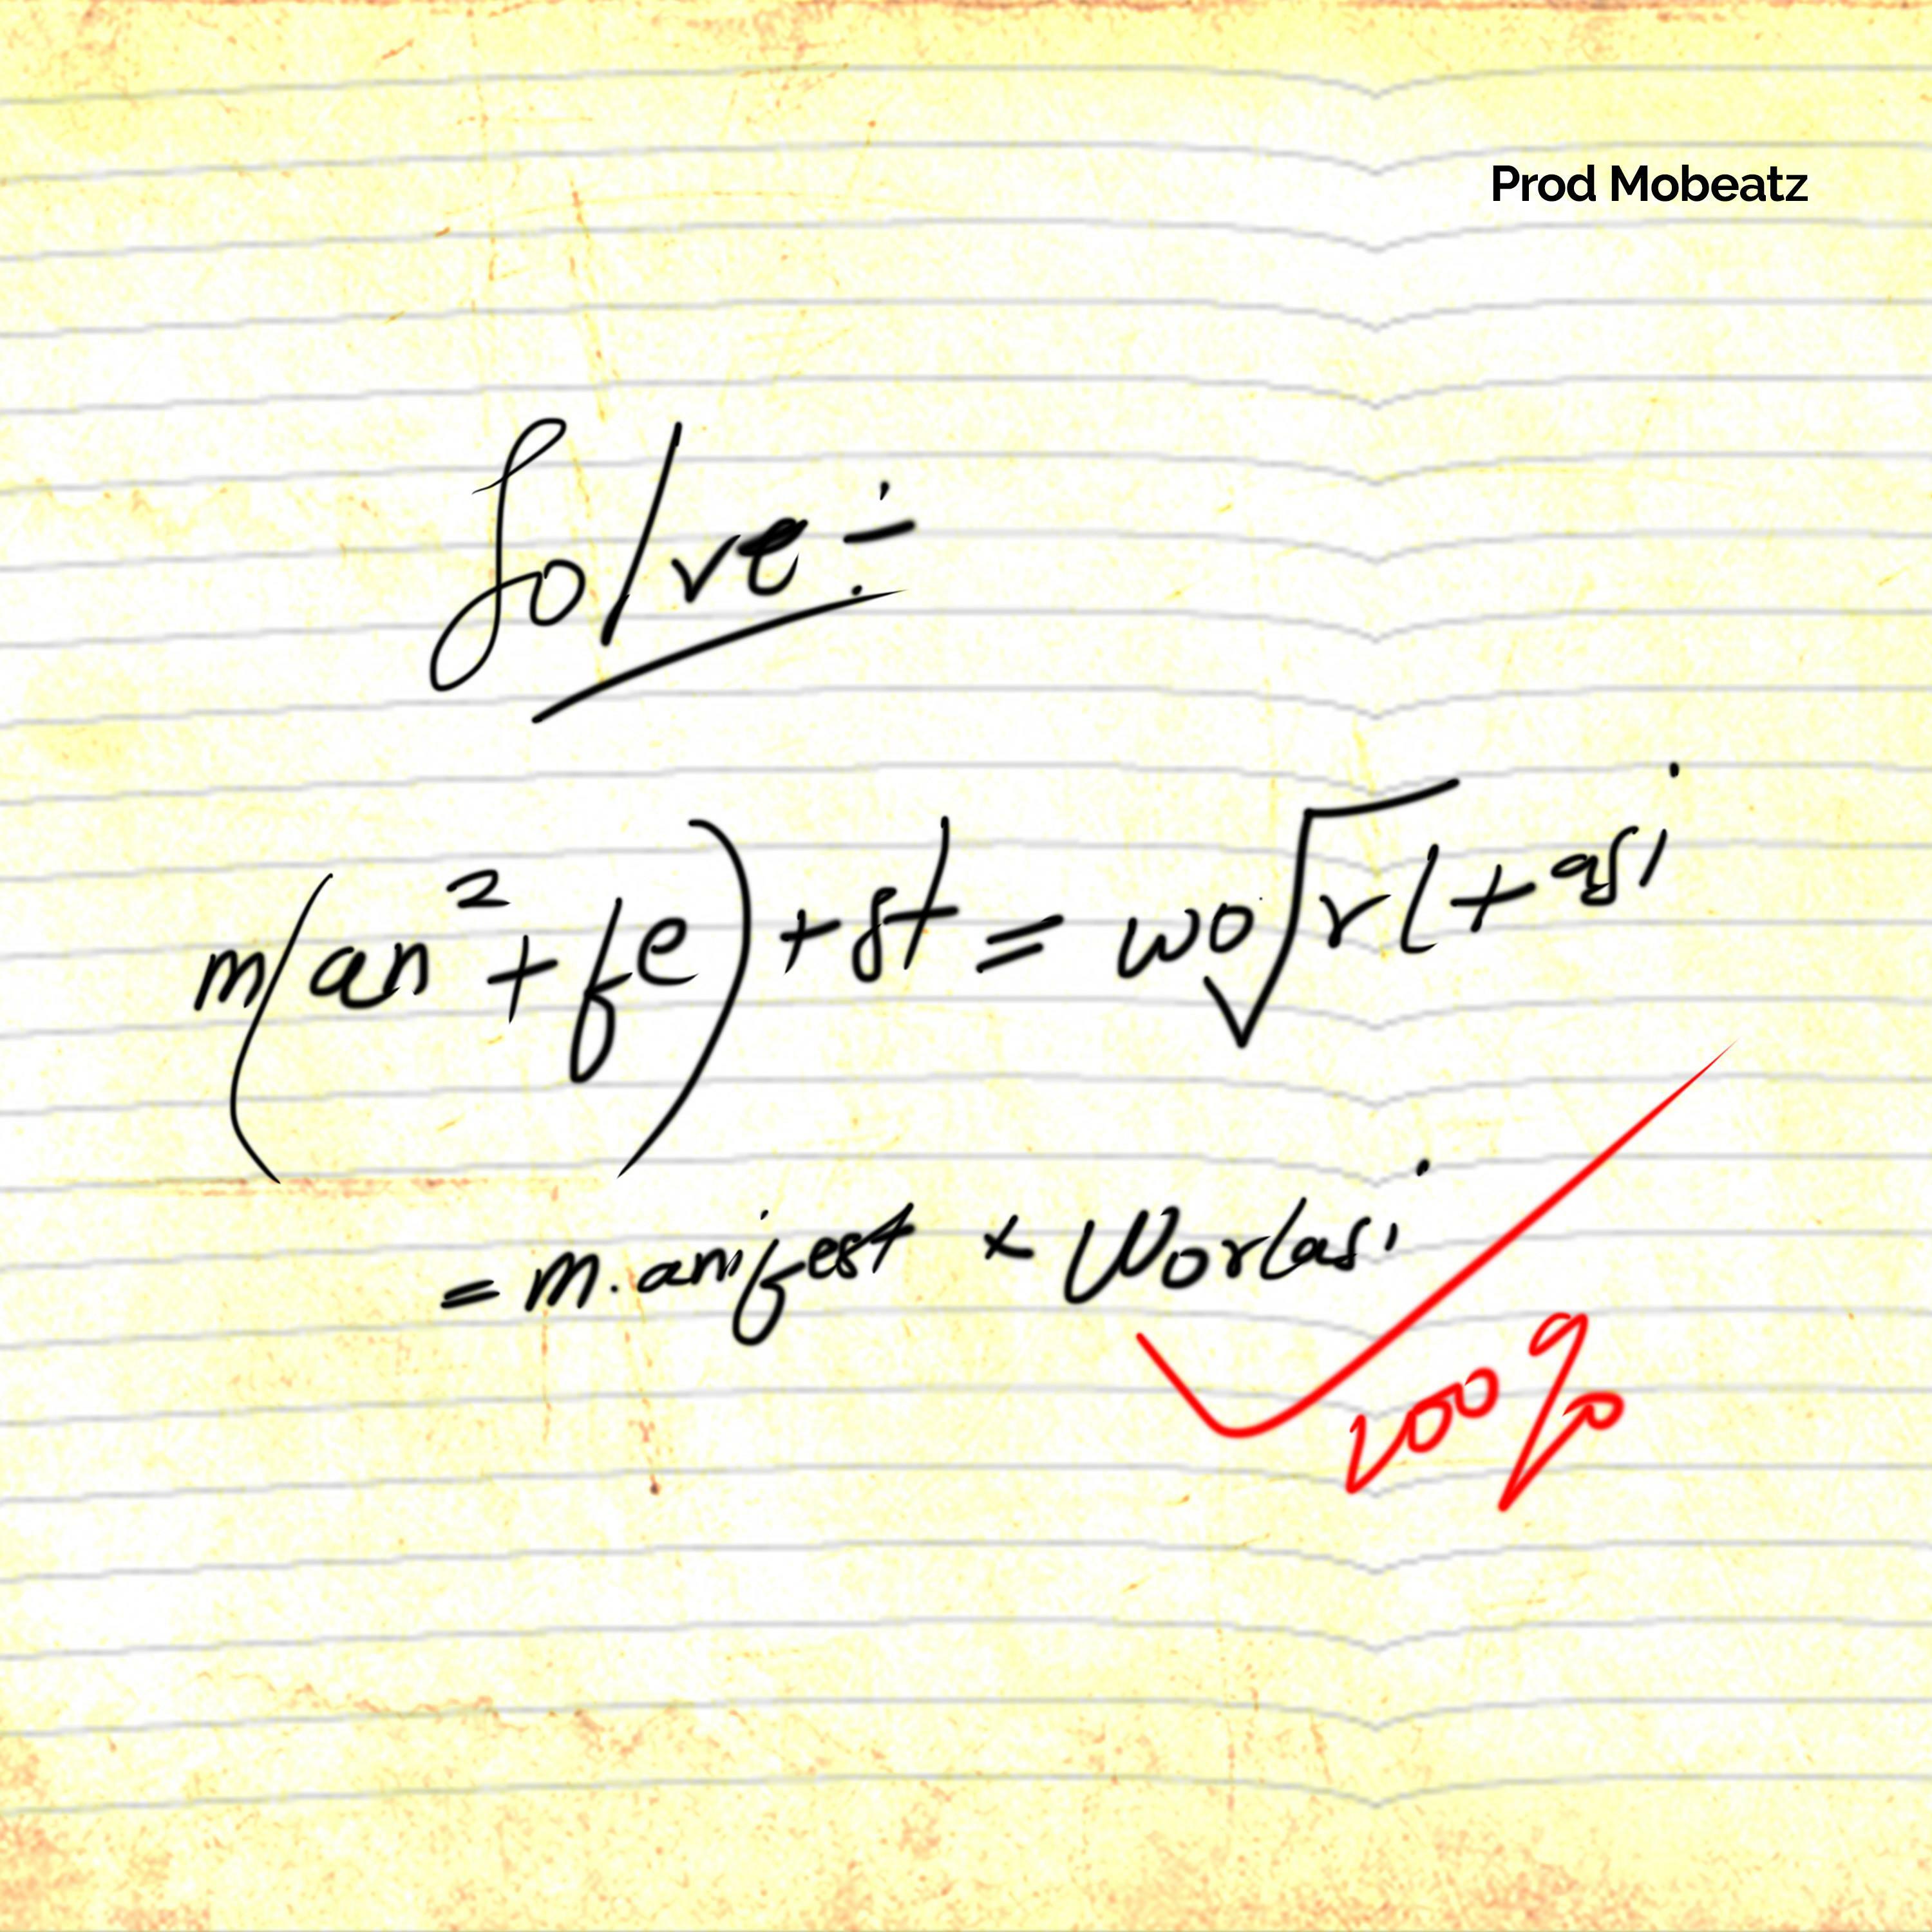 Prod Mobeatz
Solve÷
m(an²+fe)+st=wo√rl+asi
=m.anifest x Worlasi
100%